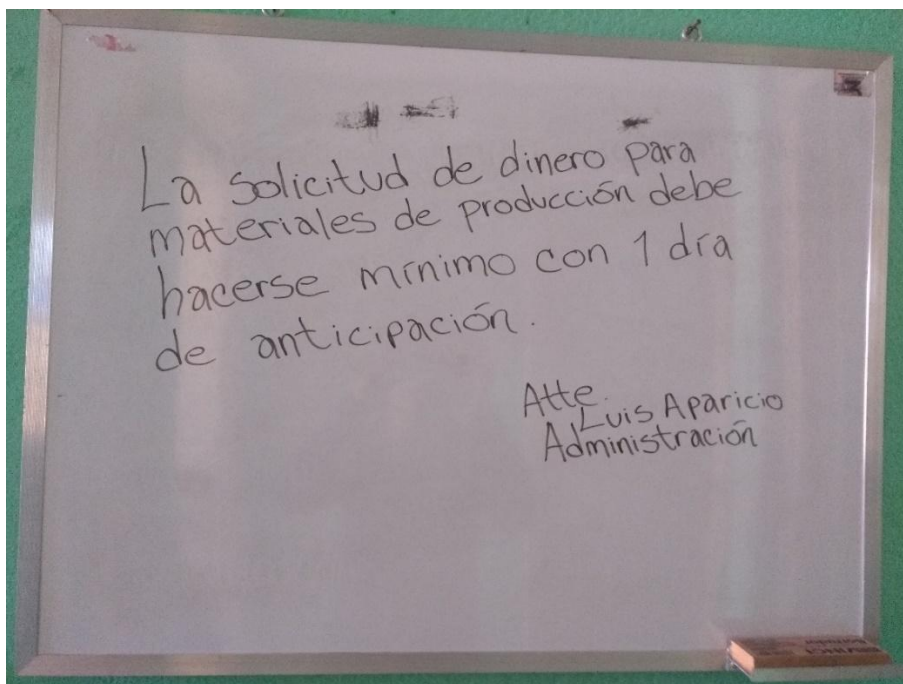 La solicitud de dinero para
materiales de producción debe
hacerse mínimo con 1 día
de anticipación.
Atte.
Luis Aparicio
Administración